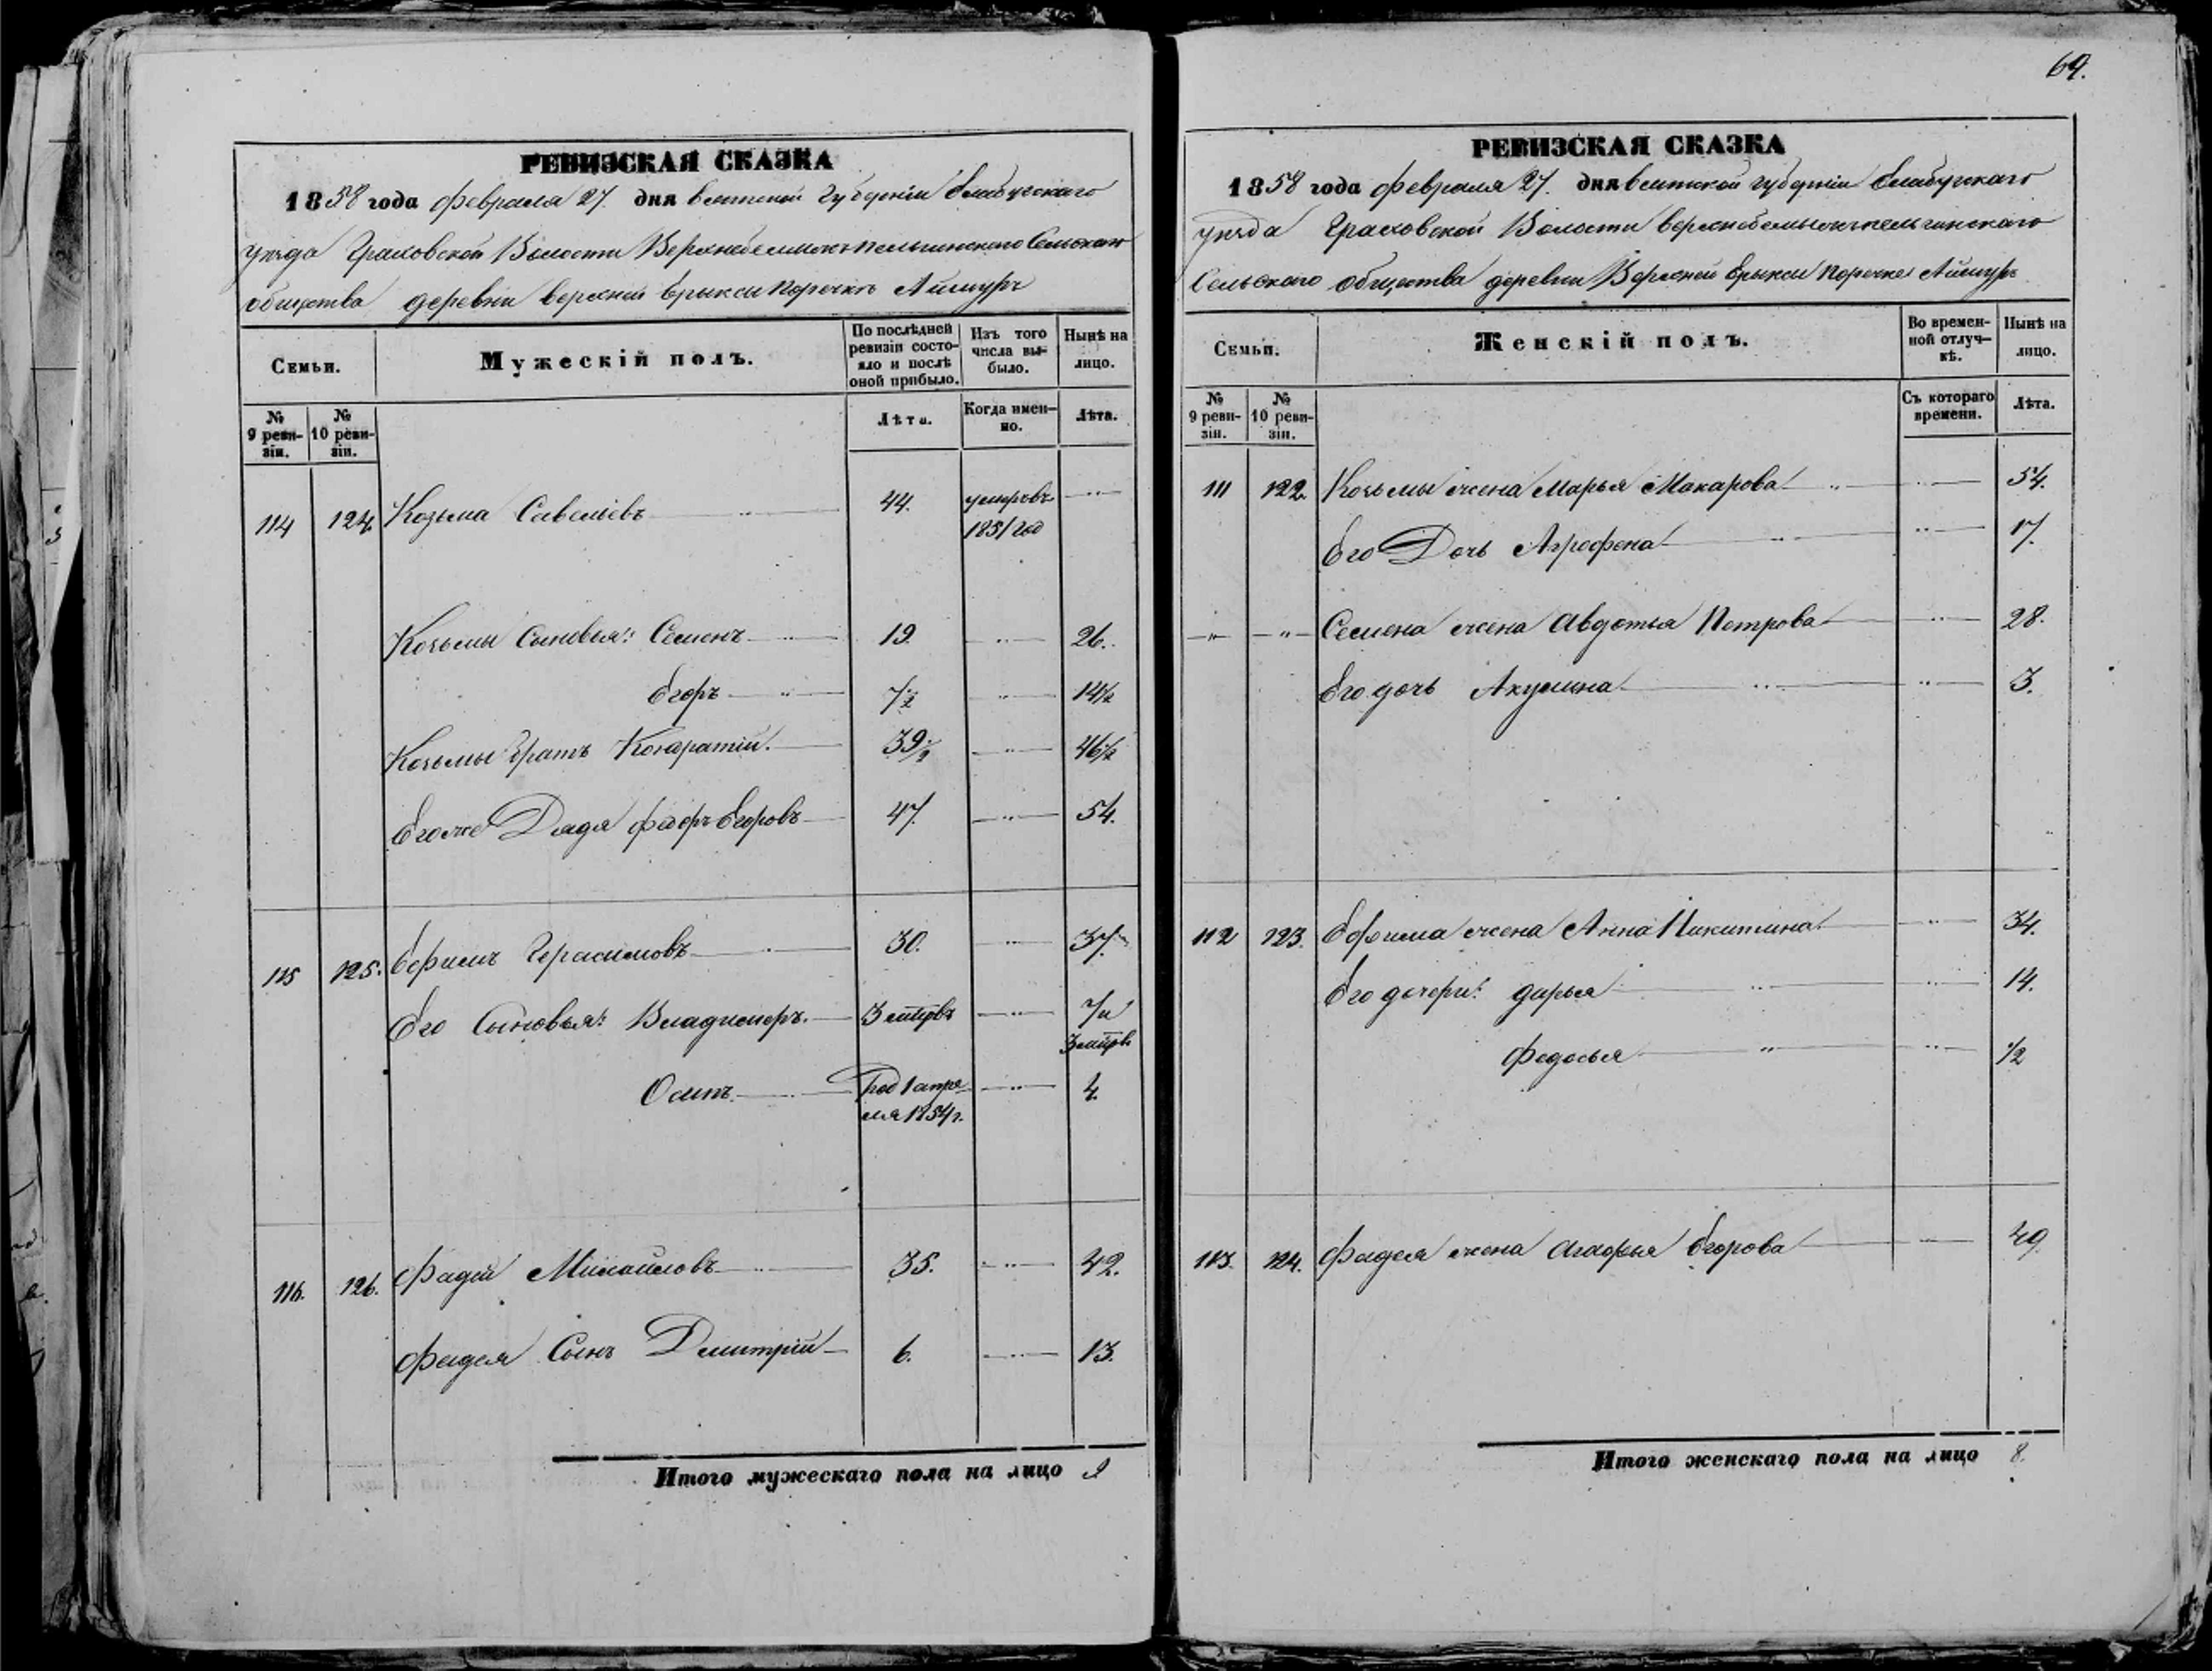 РЕВИЗСКАЯ СКАЗКА
1858 года февраля 27. дня Вятской Губерніи Елабугскаго
уѣзда Граховской Волости Сельскаго
общества деревни верхней Ерыксы поречкѣ Айшуръ
Семьи.
Мужескій полъ.
По послѣдней ревизіи состояло и послѣ оной прибыло.
Изъ того числа выбыло.
Нынѣ на лицо.
№ 9 ревизіи.
№ 10 ревизіи.
Лѣта.
Когда именно.
Лѣта.
114 124. Козьма Савельевъ 44. умеръ въ 1851 год
Козьмы Сыновья: Семенъ 19. 26.
Егоръ 7½ 14½
Козьмы братъ Кондратій. 39½ 46½
Егоже Дядя Федоръ Егоровъ 47. 54.
115 125. Ефимъ Герасимовъ 30. 37.
Его Сыновья: Владимеръ. 3 мѣцовъ 7 и 3 мѣцов
Осипъ. Род 1 апреля 1854 г. 4.
116. 126. Фадей Михайловъ 35. 42.
Фадея Сынъ Дмитрій 6. 13.
Итого мужескаго пола на лицо 9
64.
РЕВИЗСКАЯ СКАЗКА
1858 года февраля 27. дня Вятской губерніи Елабугскаго
уѣзда Граховской Волости
Сельскаго общества деревни Верхней Ерыксы поречке Айшуръ
Семьи.
Женскій полъ.
Во временной отлучкѣ.
Нынѣ на лицо.
№ 9 ревизіи.
№ 10 ревизіи.
Съ котораго времени.
Лѣта.
111 122. Козьмы жена Марья Макарова 54.
Его Дочь Агрофена 17.
Семена жена Авдотья Петрова 28.
Его дочь Акулина 3.
112 123. Ефима жена Анна Никитина 34.
Его дочери: дарья 14.
Федосья ½
113. 124. Фадея жена Агафья Егорова 49.
Итого женскаго пола на лицо 8.